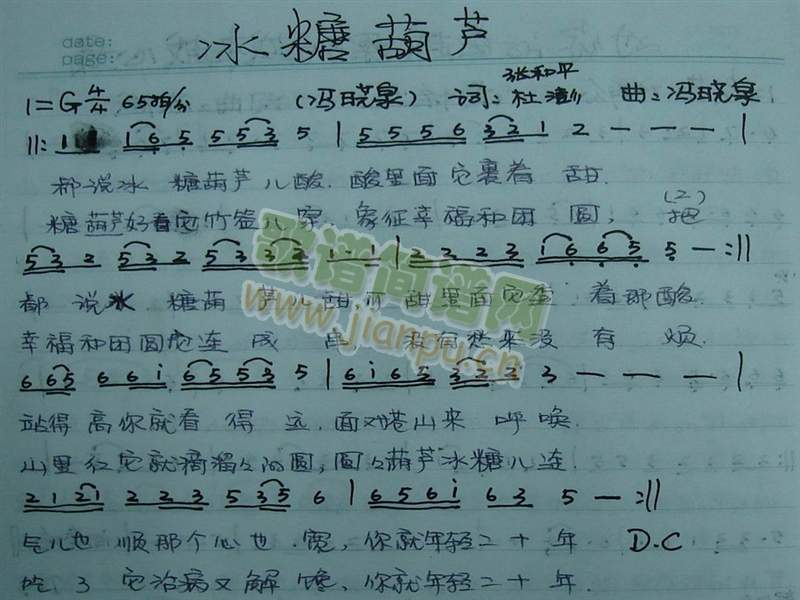 date:
page:
冰糖葫芦
1=G 4/4 65拍/分 (冯晓泉) 词:张和平 杜 曲:冯晓泉
5 5 5 6 3 2 1 2 — — — |
都说冰 糖葫芦儿酸, 酸里面它裹着 甜.
糖葫芦好看它竹签儿穿 象征幸福和团 圆, (2) 把
5 3 2 5 3 2 5 3 3 2 1 · 1 | 2 2 2 3 1 6 6 5 5 — :||
都 说冰 糖葫 芦儿甜,可 甜里面它 着那酸
幸福和团圆它连 成 串 没有愁来没 有 烦.
歌谱简谱网
www.jianpu.cn
6 6 5 6 6 i 6 5 5 3 5 | 6 i 6 5 3 2 2 3 — — — |
站得 高你就看 得 远, 面对苍山来 呼唤.
山里红它就滴溜々的圆, 圆々葫芦冰糖儿连.
2 1 2 1 2 2 3 5 3 5 6 | 6 5 6 i 6 3 5 — :||
气儿也 顺那个心也 宽, 你就年轻二十 年 D.C
吃 了 它治病又解 馋, 你就年轻二十 年.